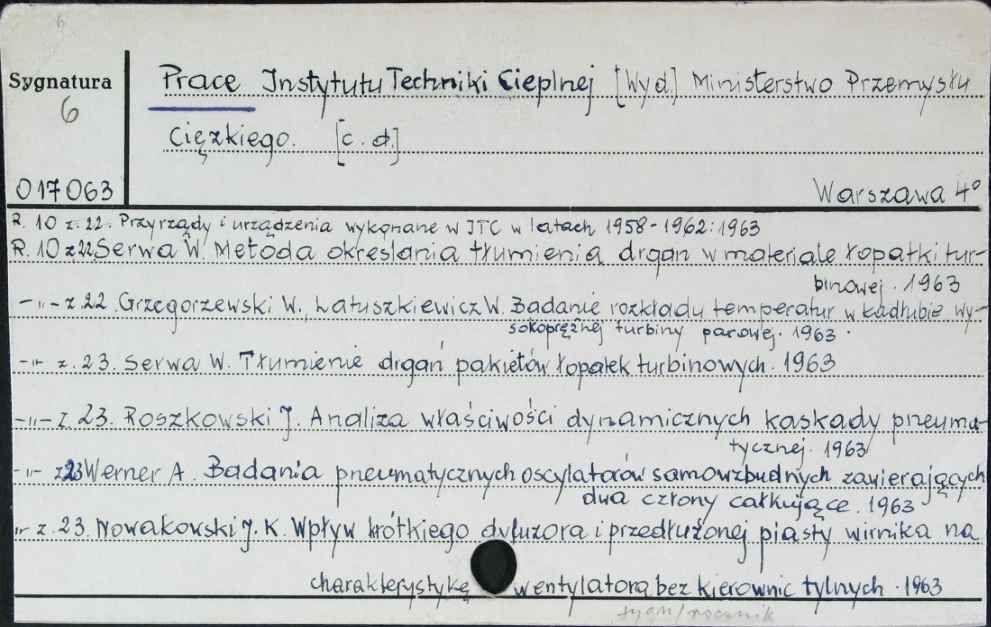 6
Sygnatura
6
017063
Prace Instytutu Techniki Cieplnej [Wyd.] Ministerstwo Przemysłu
Ciężkiego. [c.d.]
Warszawa 4°
R. 10 z. 22. Przyrządy i urządzenia wykonane w ITC w latach 1958-1962: 1963
R. 10 z 22 Serwa W. Metoda określania tłumienia drgań w materiale łopatki tur-
binowej. 1963
-"- z. 22. Grzegorzewski W., Łatuszkiewicz W. Badanie rozkładu temperatur w kadłubie wy-
sokoprężnej turbiny parowej. 1963.
-"- z. 23. Serwa W. Tłumienie drgań pakietów łopatek turbinowych. 1963
-"- z. 23. Roszkowski J. Analiza właściwości dynamicznych kaskady pneuma-
tycznej. 1963
-"- z 23 Werner A. Badania pneumatycznych oscylatorów samowzbudnych zawierających
dwa człony całkujące. 1963
"- z. 23. Nowakowski J. K. Wpływ krótkiego dyfuzora i przedłużonej piasty wirnika na
charakterystykę wentylatora bez kierownic tylnych. 1963
sygn/rocznik